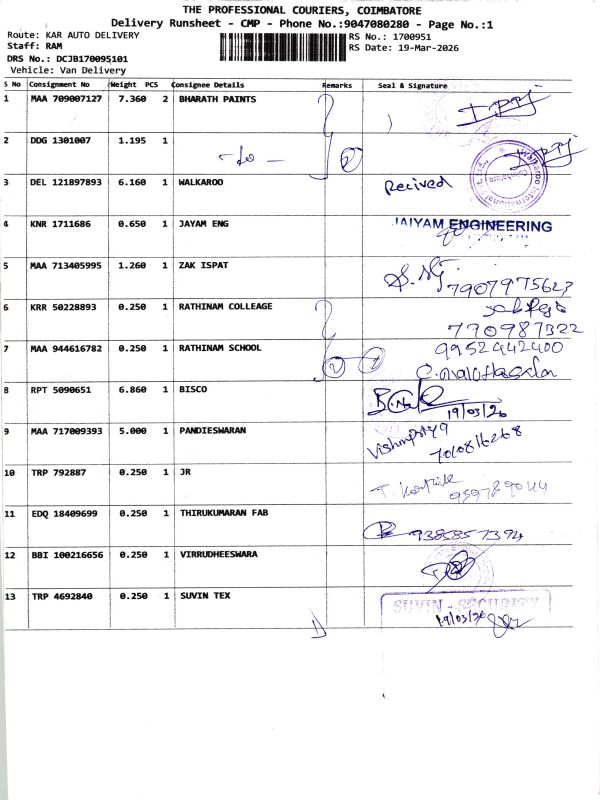 THE PROFESSIONAL COURIERS, COIMBATORE
Delivery Runsheet - CMP - Phone No.:9047080280 - Page No.:1
Route: KAR AUTO DELIVERY
RS No.: 1700951
Staff: RAM
RS Date: 19-Mar-2026
DRS No.: DCJB170095101
Vehicle: Van Delivery
S No Consignment No Weight PCS Consignee Details Remarks Seal & Signature
1 MAA 709007127 7.360 2 BHARATH PAINTS
2 DDG 1301007 1.195 1 -do-
3 DEL 121897893 6.160 1 WALKAROO Recived
4 KNR 1711686 0.650 1 JAYAM ENG JAIYAM ENGINEERING
5 MAA 713405995 1.260 1 ZAK ISPAT
6 KRR 50228893 0.250 1 RATHINAM COLLEAGE
7 MAA 944616782 0.250 1 RATHINAM SCHOOL 9952442400
8 RPT 5090651 6.860 1 BISCO 19/03/26
9 MAA 717009393 5.000 1 PANDIESWARAN
10 TRP 792887 0.250 1 JR
11 EDQ 18409699 0.250 1 THIRUKUMARAN FAB 9385857394
12 BBI 100216656 0.250 1 VIRRUDHEESWARA
13 TRP 4692840 0.250 1 SUVIN TEX SUVIN - SECURITY
19/03/26